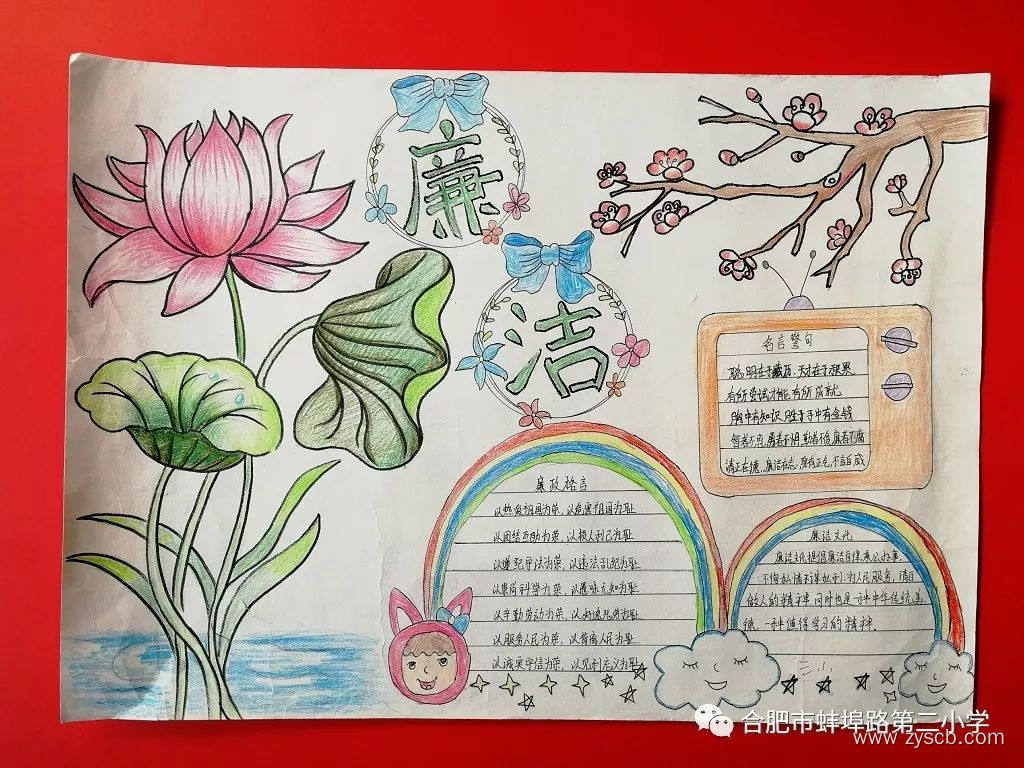 廉
洁
名言警句
聪明在于勤历，天才在于积累
有所尝试才能有所成就
胸中有知识 胜于手中有金钱
智者不惑，勇者不惧，勤者不贪，廉者不腐
清正在德，廉洁在志，身有正气，不言自威
廉政格言
以热爱祖国为荣，以危害祖国为耻
以团结互助为荣，以损人利己为耻
以遵纪守法为荣，以违法乱纪为耻
以崇尚科学为荣，以愚昧无知为耻
以辛勤劳动为荣，以好逸恶劳为耻
以服务人民为荣，以背离人民为耻
以诚实守信为荣，以见利忘义为耻
廉洁文化
廉洁文化提倡廉洁自律秉公办事，
不徇私情不谋私利，为人民服务，清白
做人的精神，同时也是一种中华传统美
德，一种值得学习的精神。
合肥市蚌埠路第二小学
www.zyscb.com